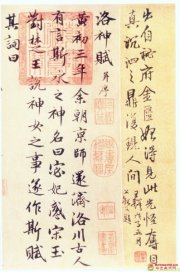 出自秘府金匱始得見此光怪奪目
泗之鼎 人間
洛神賦 并序
黄初三年余朝京師還濟洛川古人
有言斯水之神名曰宓妃感宋玉
對楚王說神女之事遂作斯賦
其詞曰